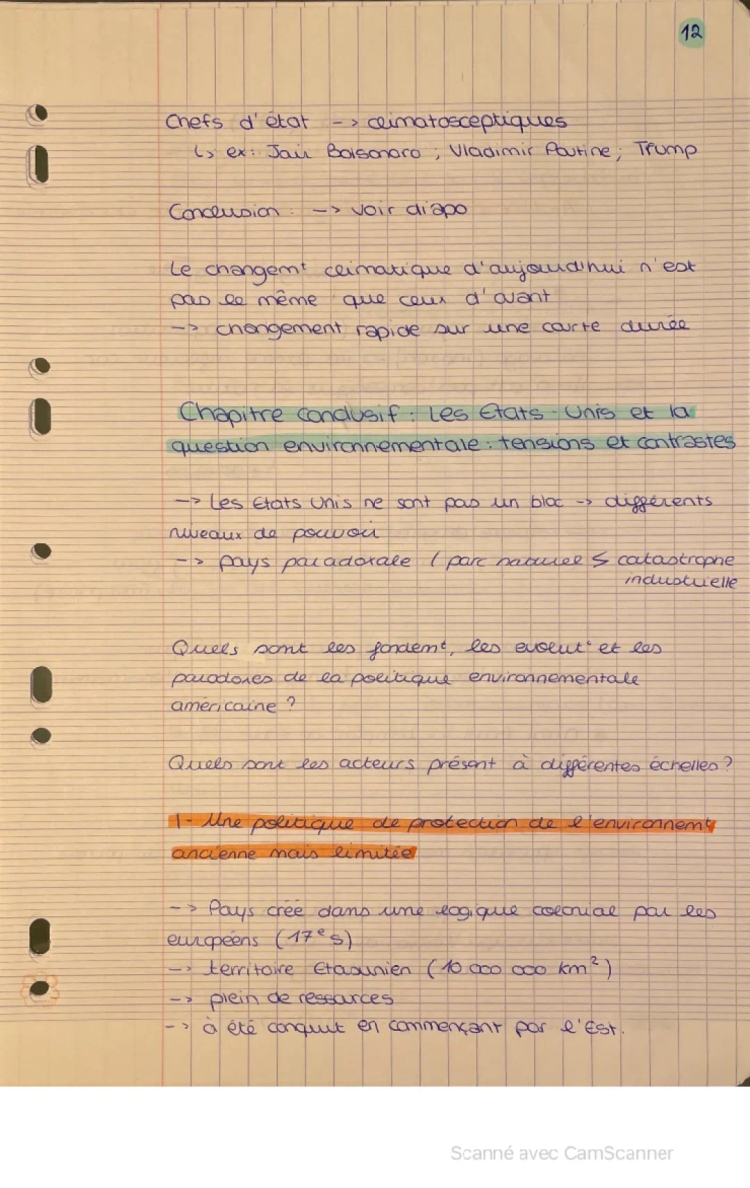 12
Chefs d'état -> climatosceptiques
↳ ex: Jair Bolsonaro ; Vladimir Poutine ; Trump
Conclusion : -> voir diapo
Le changemt climatique d'aujourd'hui n'est
pas le même que ceux d'avant
-> changement rapide sur une courte durée
Chapitre conclusif : Les Etats-Unis et la
question environnementale : tensions et contrastes
-> Les Etats Unis ne sont pas un bloc -> différents
niveaux de pouvoir
-> pays paradoxale ( parc naturel ≤ catastrophe
industrielle
Quels sont les fondemt, les evolut° et les
paradoxes de la politique environnementale
américaine ?
Quels sont les acteurs présent à différentes échelles ?
1- Une politique de protection de l'environnemt
ancienne mais limitée
-> Pays créé dans une logique colonial par les
européens (17e s)
-> territoire Etasunien (10 000 000 km²)
-> plein de ressources
-> à été conquit en commençant par l'Est.
Scanné avec CamScanner